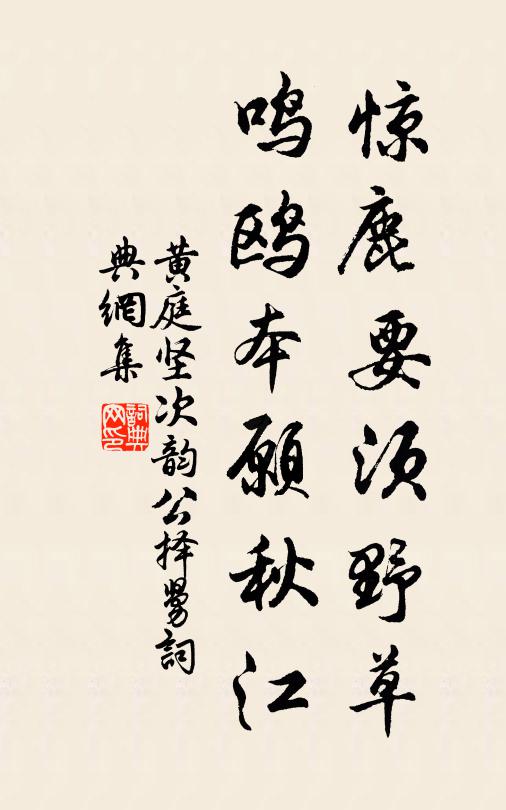 惊鹿要须野草
鸣鸥本愿秋江
黄庭坚次韵公择舅詞
典網集
詞典
网印